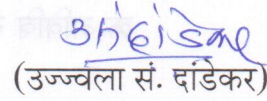 (उज्ज्वला सं. दांडेकर)